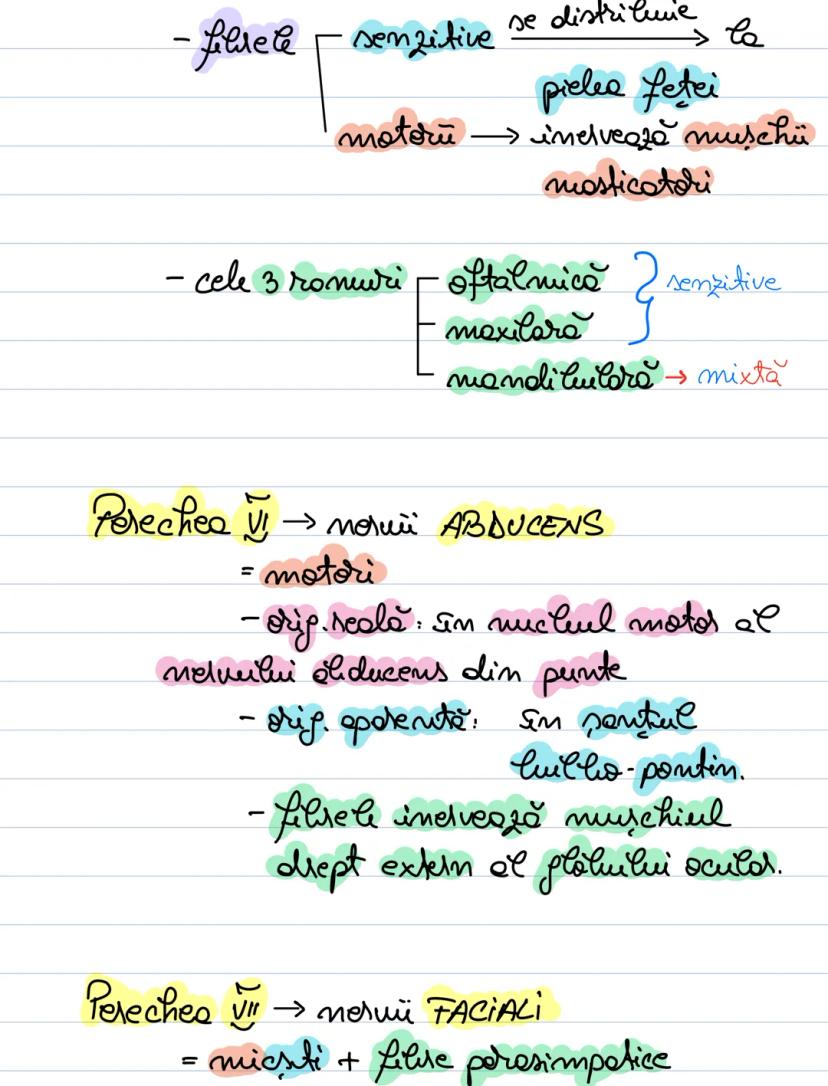 - fibrele senzitive se distribuie → la
pielea feței
motorii → inervează mușchii
masticatori
- cele 3 ramuri oftalmică } senzitive
maxilară
mandibulară → mixtă
Perechea VI → nervii ABDUCENS
= motori
- orig. reală: în nucleul motor al
nervului abducens din punte
- orig. aparentă: în șanțul
bulbo-pontin.
- fibrele inervează mușchiul
drept extern al globului ocular.
Perechea VII → nervii FACIALI
= micști + fibre parasimpatice